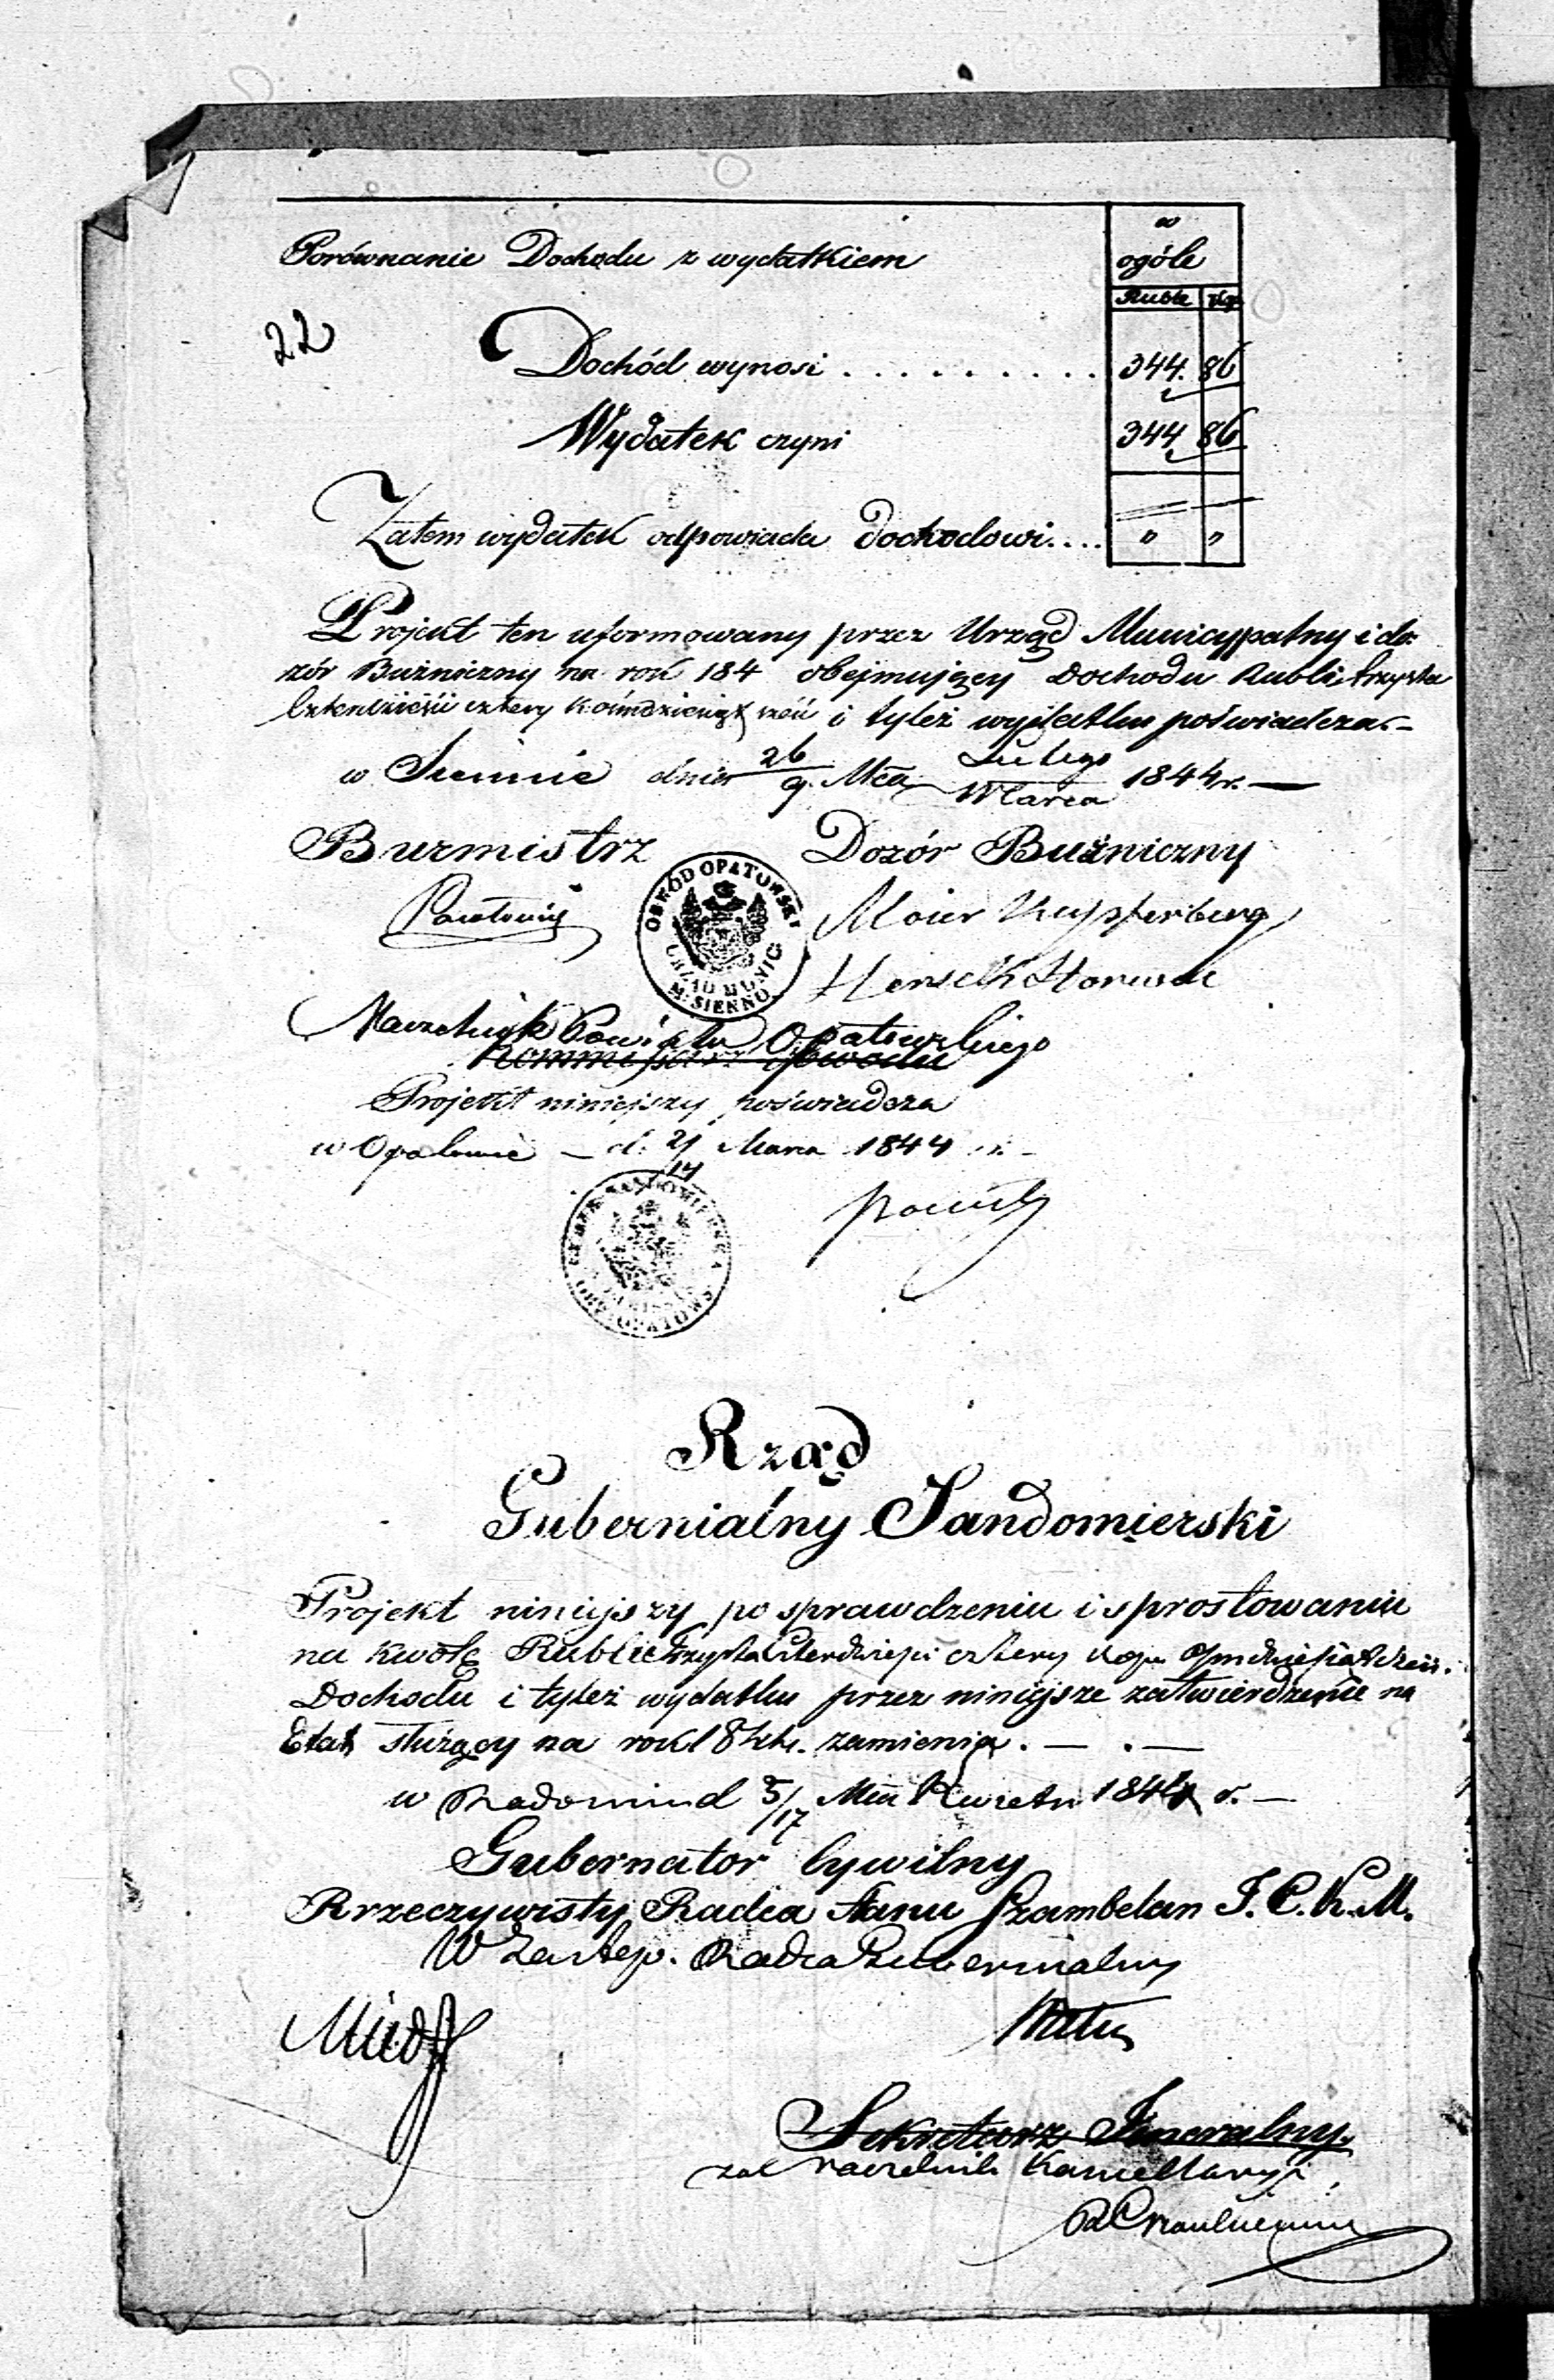 w
Porównanie Dochodu z wydatkiem ogóle
Ruble kop
22
Dochód wynosi . . . . . . . . . 344. 86
Wydatek czyni 344 86
Zatem wydatek odpowiada dochodowi.... " "
Projekt ten uformowany przez Urząd Municypalny i do-
zór Bużniczny na rok 184 obejmujący Dochodu Rubli trzysta
cztery i tyleż wydatku poświadcza.-
w Siennie dnia 26/9. Mca Lutego/Marca 1844 r. —
Burmistrz Dozór Bużniczny
OBWÓD OPATOWSKI
URZĄD MUNIC.
M. SIENNO
Hersek
Naczelnik Powiatu Opatowskiego
Kommissarz Obwodu
Projekt niniejszy poświadcza
w Opatowie — d. Marca 1844 r. -
Rząd
Gubernialny Sandomierski
Projekt niniejszy po sprawdzeniu i sprostowaniu
na kwotę Rubli Trzysta Czterdzieści cztery kop.
Dochodu i tyleż wydatku przez niniejsze zatwierdzenie na
Etat służący na rok 1844. zamienia. — . —
w Radomiu d 5/17 Mca Kwietn 1844 r. —
Gubernator Cywilny
Rzeczywisty Radca Stanu Szambelan J. C. K. M.
W Zastęp. Radca Gubernialny
Sekretarz Jeneralny.
za Naczelnik Kancellaryi